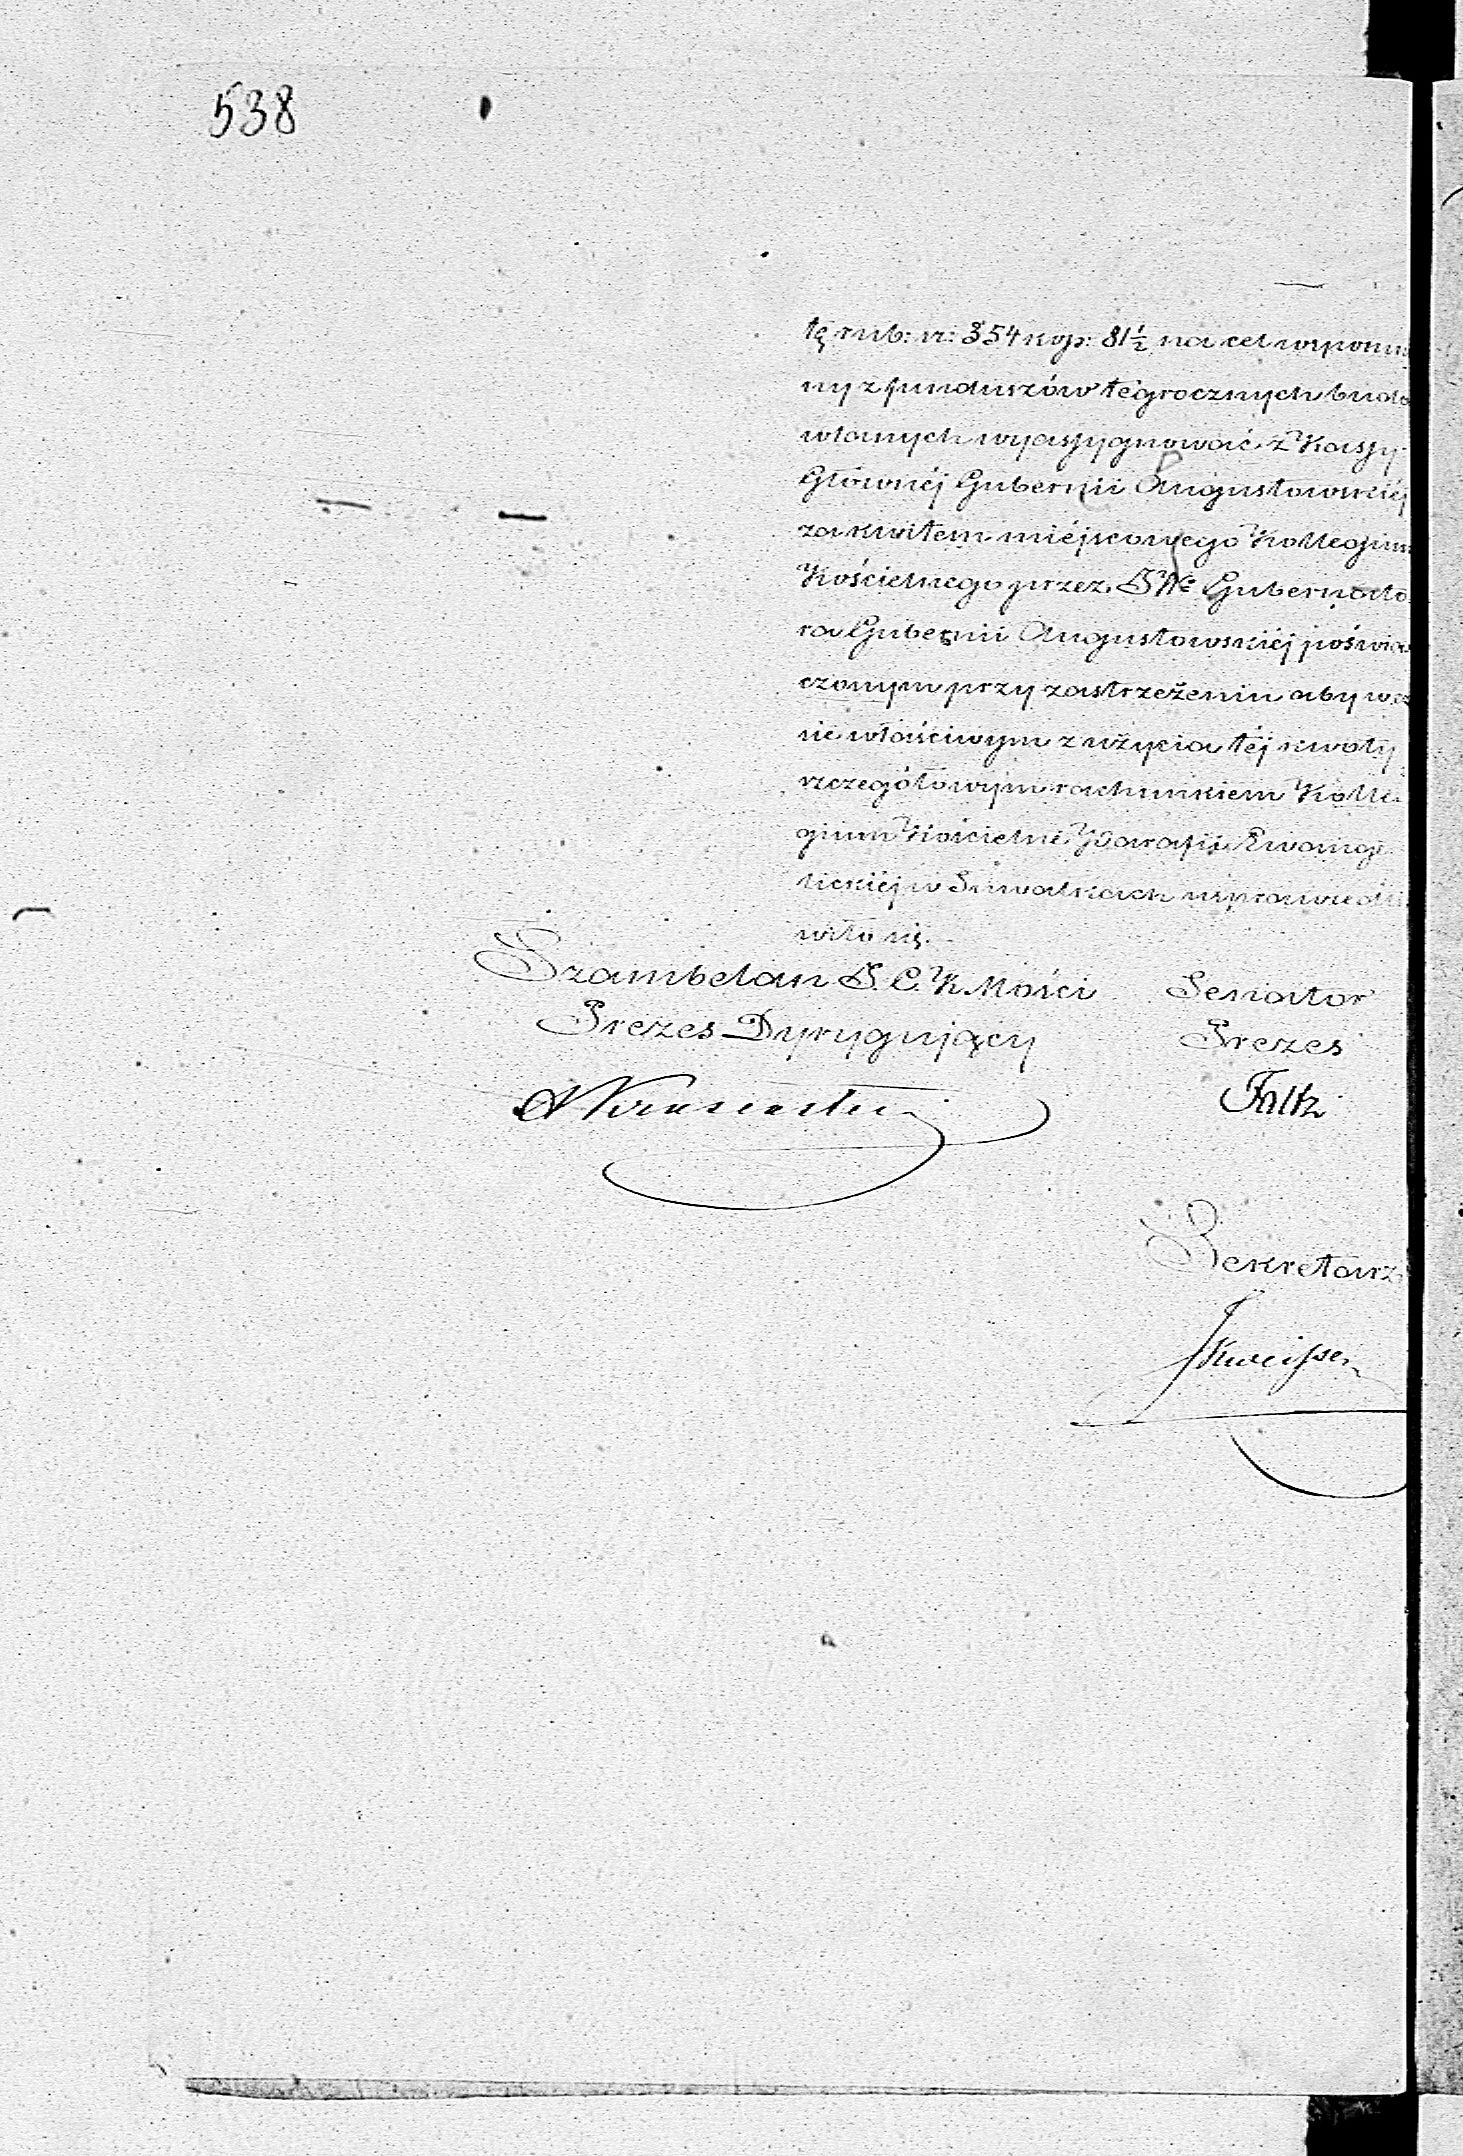 538
tę rub: sr: 354 kop: 81½ na cel wspomnio
ny z funduszów tegrocznych budo
wlanych wyassygnować z Kassy
Głównéj Gubernii Augustowskiéj
za kwitem miéjscowego Kollegium
Kościelnego przez JWe Gubernato
ra Gubernii Augustowskiéj poświad
czonym przy zastrzeżeniu aby w cza
sie właściwym z użycia téj kwoty
szczegółowym rachunkiem Kolle
gium Kościelne Parafii Ewange
lickiéj w Suwałkach usprawiedli
wiło się.
Szambelan J. C. K. Mości
Prezes Dyrygujący
Senator
Prezes
Faltz
Sekretarz